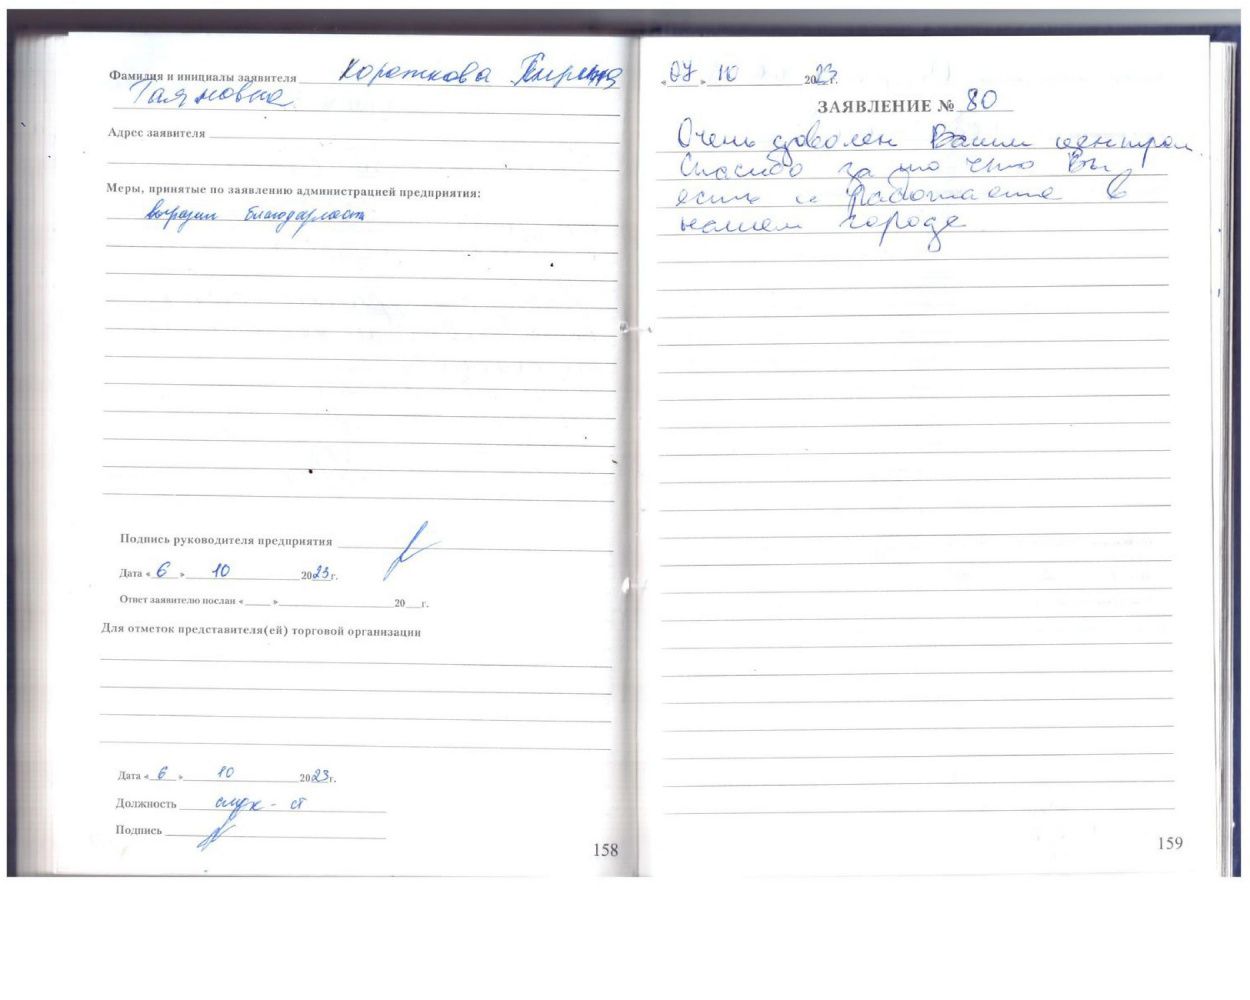 Фамилия и инициалы заявителя Короткова
Адрес заявителя
Меры, принятые по заявлению администрацией предприятия:
выразил благодарность
Подпись руководителя предприятия
Дата « 6 » 10 2023 г.
Ответ заявителю послан « » 20 г.
Для отметок представителя(ей) торговой организации
Дата « 6 » 10 2023 г.
Должность
Подпись
158
« 07 » 10 2023 г.
ЗАЯВЛЕНИЕ № 80
Очень доволен Вашим центром
Спасибо за то что Вы
есть и Работаете в
нашем городе
159